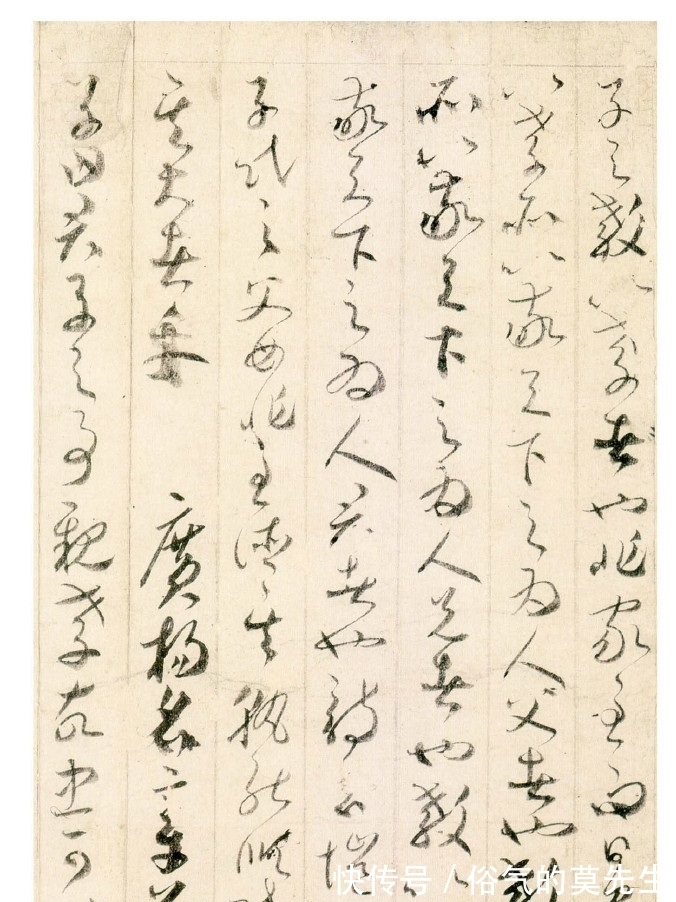 子之教以孝者也非家至而日見
以孝所以敬天下之為人父者也教
所以敬天下之為人兄者也教以
敬天下之為人君者也詩云愷
子民之父母非至德其孰能順民
其大者乎 廣揚名章第
子曰君子之事親孝故忠可
快传号 / 俗气的莫先生